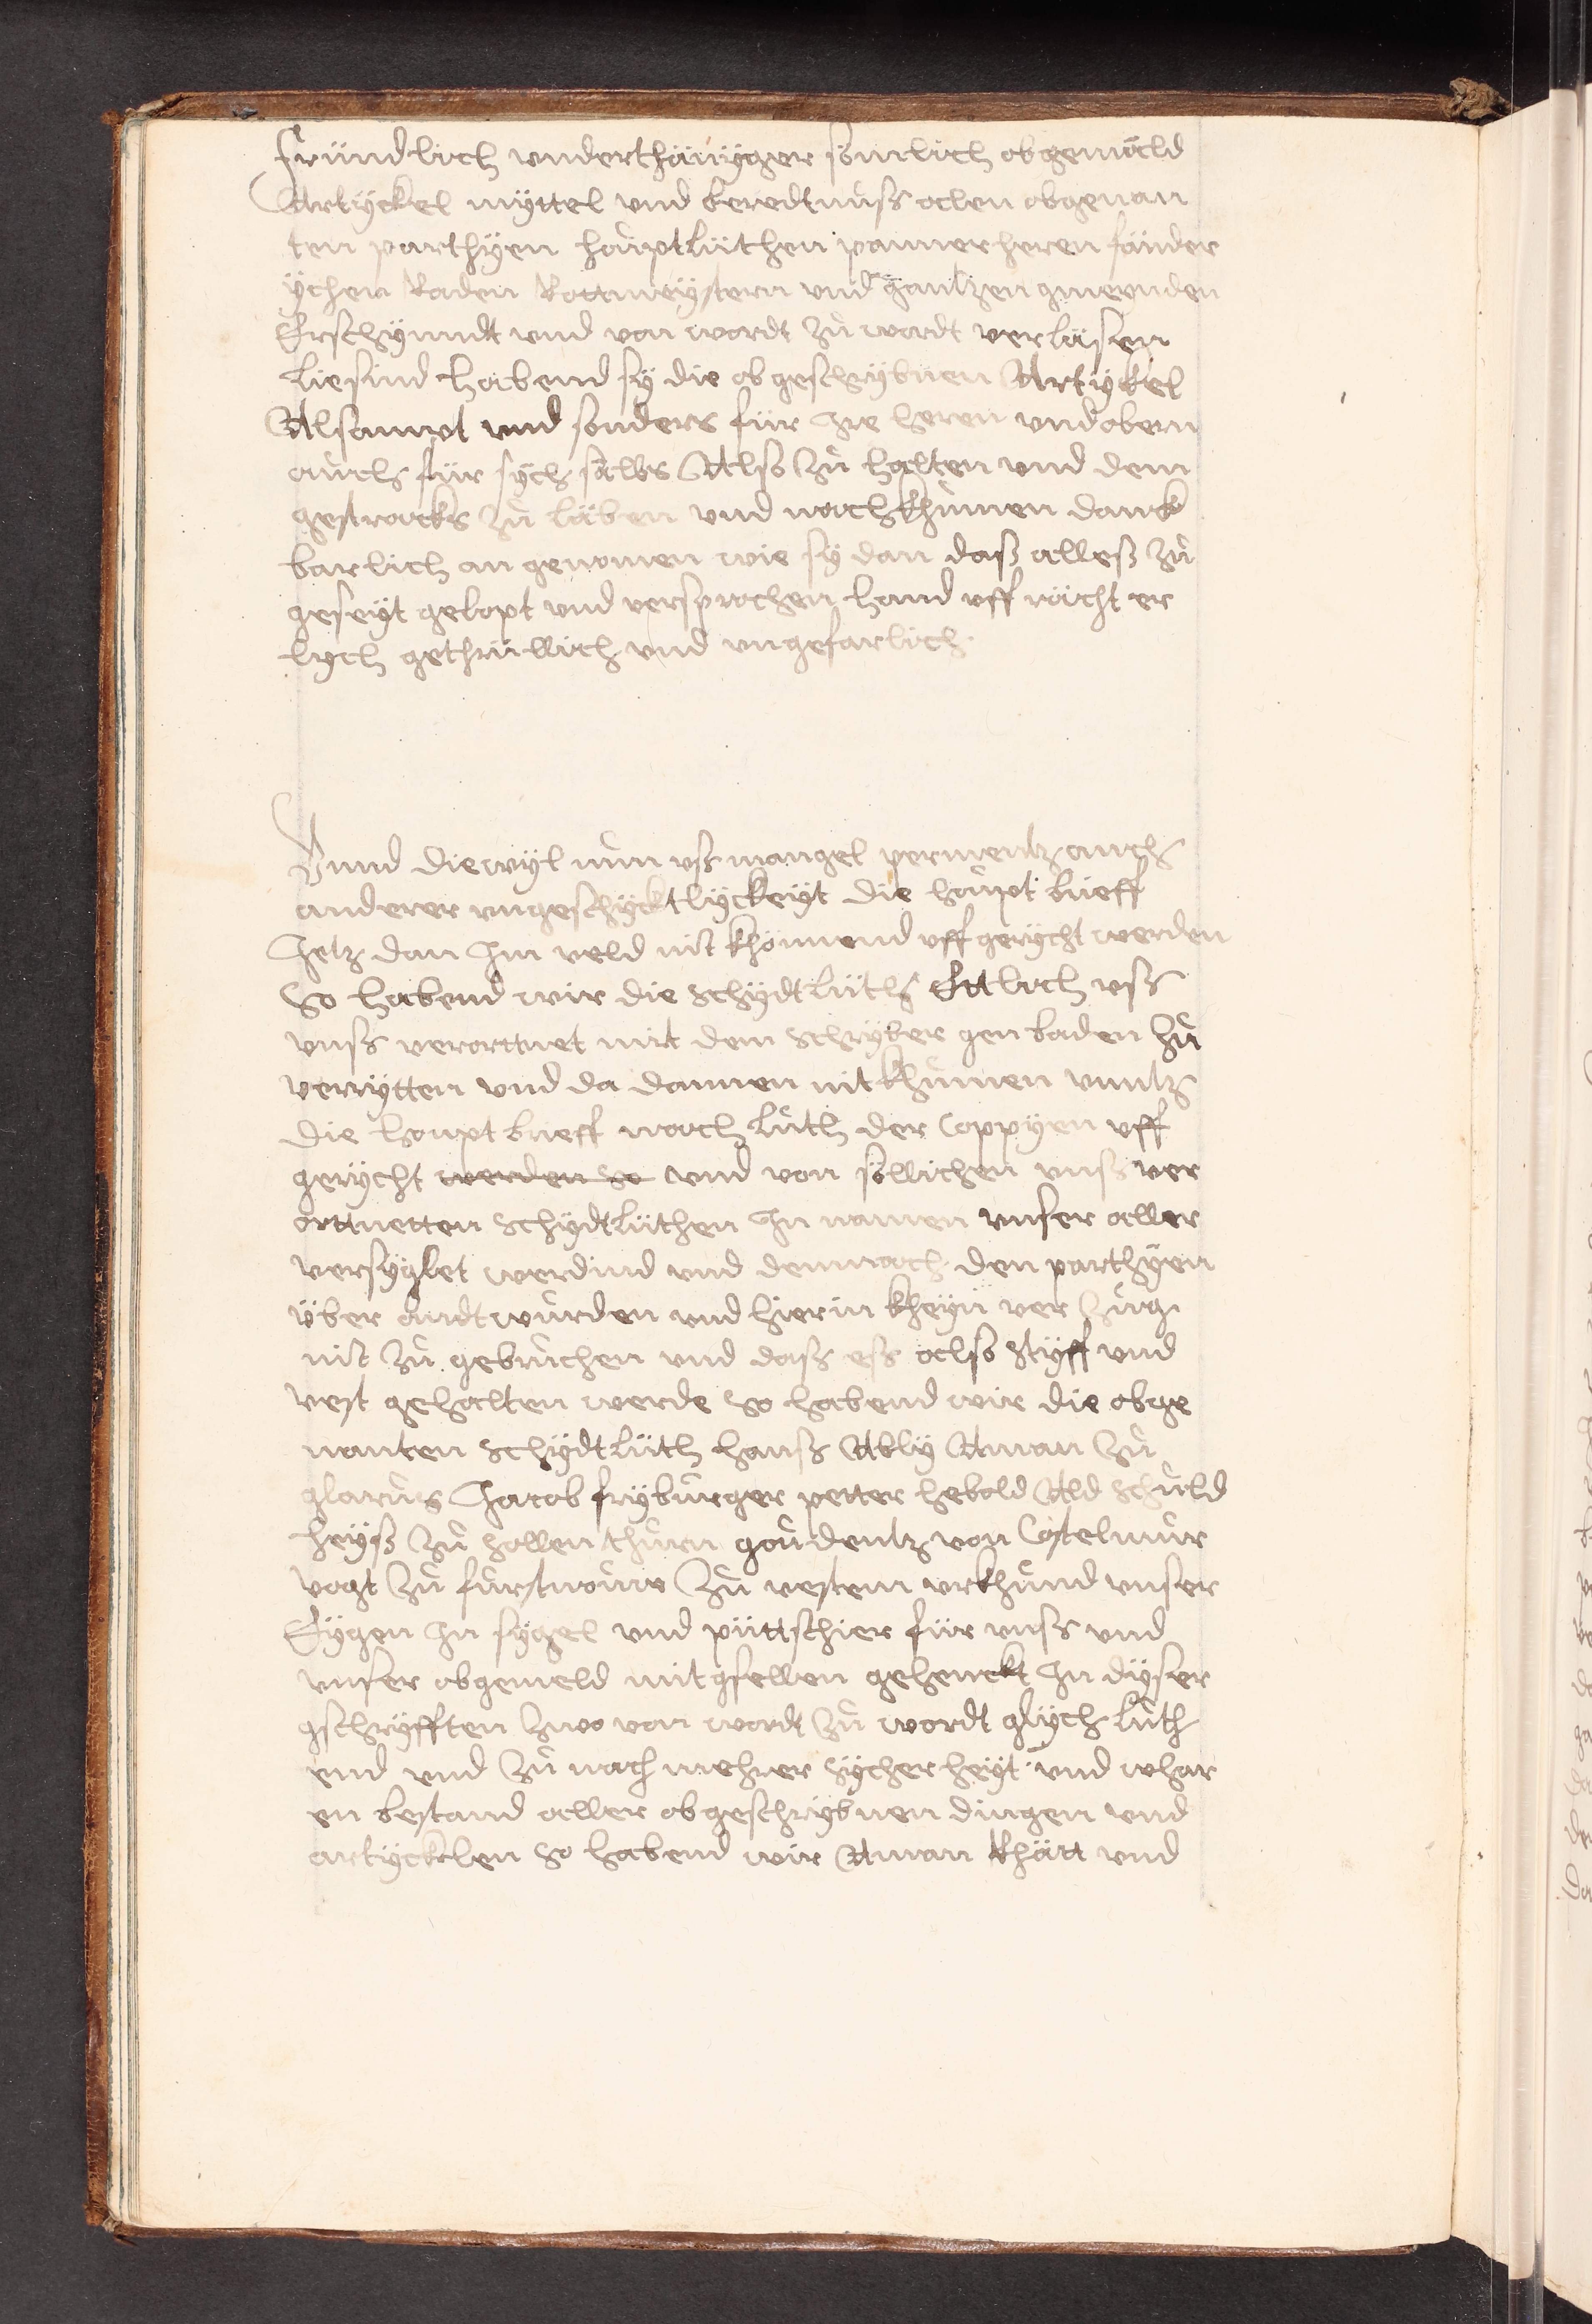 fründtlich underthänyger sömlich obgemäld
Artyckel myttel und beredtnuß allen obgenan
ten parthyen hauptlüthen panerheren fänder
ychen Räden Rottmeystern und gantzen gmeynden
Erschynndt und von wordt zů wordt verläsen
liesind habend sy die obgeschrybnen Artykel
Alsampt und sonders für Ire heren und obern
auch für sych sälbs Also zů halten und dem
gestracks zů läben und nachkhumen danck
barlich angenomen wie sy dan daß alleß zů
geseyt gelopt und versprochen hand uff rächt er
lych gethrüwlich und ungefarlich.
Unnd diewyl nun uß mangel perments auch
anderer ungeschycktlyckeyt die haupt brieff
Jetz dan Im veld nit khönnend uffgerycht werden
So habend wir die schydtlüth Ettlich uß
unß verorttnet mit dem schryber gen baden zů
verrytten und da dannen nit khumen unntz
die houpt brieff nach luth der Coppyen uff
gerycht werden so und von söllichen unß ver
orttnetten schydtlüthen In namen unser aller
versyglet werdind und demnach den parthyen
über andtwurden und hierin kheyn verzug
nit zů gebruchen und daß eß also styff und
vest gehalten werde so habend wir die obge
nanten schydtlüth hanß Ably Aman zů
glarus Jacob fryburger petter hebold Ald schuld
heyß zů sollenthurn goudentz von Castelmur
vogt zů furstnouw zů vestem urkhund unser
Eygen In sygel und püttschier für unß und
unser obgemeld mitgsellen gehenckt In dyser
gschryfften zwo von wordt zů wordt glych luth
end und zů nach mehrer sycherheyt und whar
en bestand aller obgeschrybnen dingen und
artycklen so habend wir Aman Rhätt und